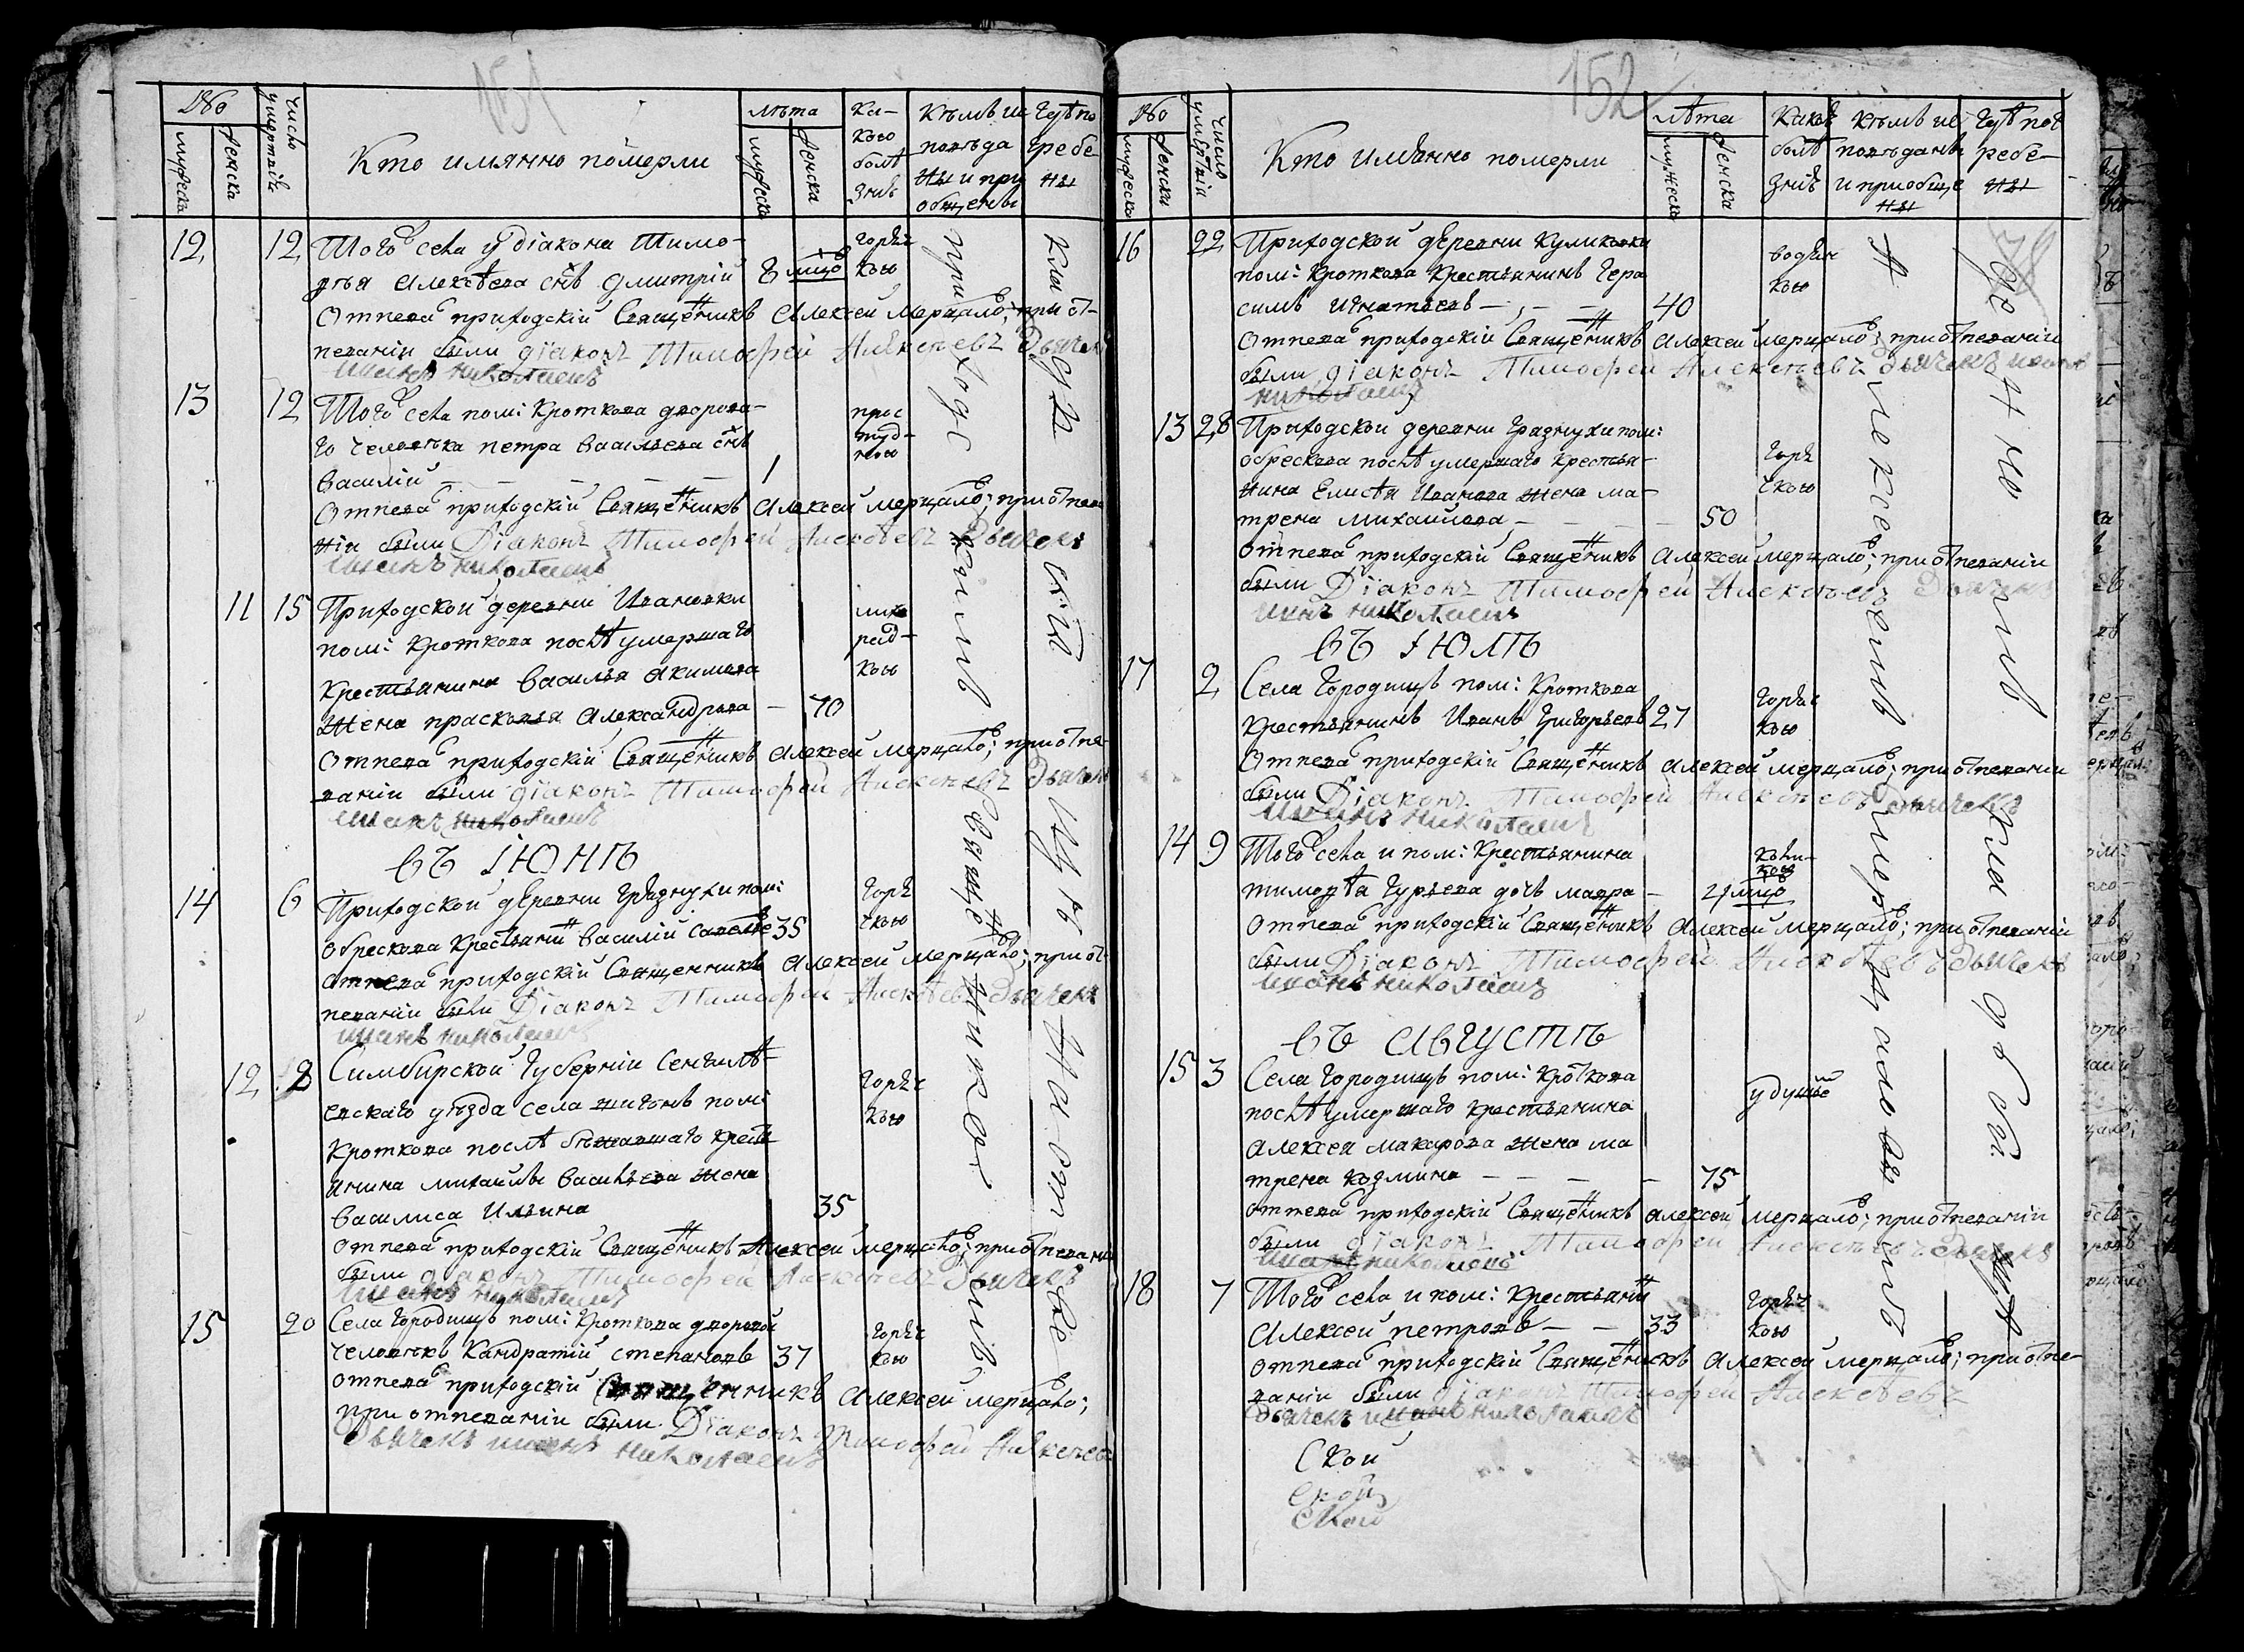 151
№
мужеска
женска
число умертвiй
Кто имянно померли
лѣта
мужеска
женска
Ка-
кою
болѣ
знiю
Кѣмъ ис
повѣда
ны и при
общены
Гдѣ по
гребе
ны
12 12 Того села у дiакона Тимо-
ѳѣя Алексѣева снъ Дмитрiй 8 мцо горяч
кою
отпевал приходскiй Священникъ Алексей Мерцалов; при от-
певанiи были дiаконъ Тимофей Алексѣевъ Дьячек
Иванъ Николаевъ
13 12 Того села пом: Кроткова дворова-
го человѣка Петра Васильева снъ
Василiй 1 прос
туд-
ною
Отпевал приходскiй Священникъ Алексей Мерцалов; при отпева
нiи были Дiаконъ Тимофей Алексѣевъ Дьячекъ
Иванъ Николаевъ
11 15 Приходской деревни Ивановки
пом: Кроткова послѣ умершаго
Крестьянина Василья Акимова
жена Прасковья Александрова 70 лихо
рад-
кою
Отпевал приходскiй Священникъ Алексей Мерцалов; при отпе-
ванiи были дiаконъ Тимофей Алексѣевъ Дьячек
Иванъ Николаевъ
въ Iюнѣ
14 6 Приходской деревни Грязнухи пом:
Обрескова Крестьянин Василiй Савелье 35 горя
чкою
отпевал приходскiй Священникъ Алексей Мерцалов; при от-
певанiи были Дiаконъ Тимофей Алексѣевъ Дьячекъ
Иванъ Николаевъ
12 Симбирской Губернiи Сенгилѣ-
евскаго уѣзда села Шигонъ пом:
Кроткова послѣ бѣжавшаго крест
янина Михайлы Васильева жена
Василиса Ильина 35 горяч
кою
отпевал приходскiй Священникъ Алексей Мерцалов; при отпеванiи
были дiаконъ Тимофей Алексѣевъ Дьячекъ
Иванъ Николаевъ
15 20 Села Городищъ пом: Кроткова дворовой
человѣкъ Кандратiй Степановъ 37 горяч
кою
отпевал приходскiй Священникъ Алексей Мерцалов;
при отпеванiи были Дiаконъ Тимофей Алексѣевъ
Дьячекъ Иванъ Николаевъ
приходскимъ Священником
152
№
мужеска
женска
число умертвiй
Кто имянно померли
лѣта
мужеска
женска
Какою
болѣ
знiю
Кѣмъ ис
повѣданы
и приобще
ны
Гдѣ пог
ребе-
ны
16 22 Приходской деревни Куликовки
пом: Кроткова Крестьянинъ Гера
симъ Игнатьевъ 40 водян
кою
отпевал приходскiй Священникъ Алексей Мерцалов; при отпеванiи
были дiаконъ Тимофей Алексѣевъ Дьячекъ Иванъ
Николаевъ
13 28 Приходской деревни Грязнухи пом:
обрескова послѣ умершаго Крестья-
нина Елисѣя Иванова жена Ма-
трена Михайлова 50 горя
чкою
отпевал приходскiй Священникъ Алексей Мерцалов; при отпеванiи
были Дiаконъ Тимофей Алексѣевъ Дьячекъ
Иванъ Николаевъ
въ Iюлѣ
17 2 Села Городищъ пом: Кроткова
Крестьянинъ Иванъ Григорьевъ 27 горяч
кою
отпевал приходскiй Священникъ Алексей Мерцалов; при отпеванiи
были Дiаконъ Тимофей Алексѣевъ Дьячекъ
Иванъ Николаевъ
14 9 Того села и пом: Крестьянина
Тимоѳѣя Гурьева дочь Мавра мцо
отпевал приходскiй Священникъ Алексей Мерцалов; при отпеванiи
были Дiаконъ Тимофей Алексѣевъ Дьячекъ
Иванъ Николаевъ
въ Августѣ
15 3 Села Городищъ пом: Кроткова
послѣ умершаго крестьянина
Алексея Макарова жена Ма
трена Козмина 75
отпевал приходскiй Священникъ Алексей Мерцалов; при отпеванiи
были дiаконъ Тимофей Алексѣевъ Дьячекъ
Иванъ Николаевъ
18 7 Того села и пом: Крестьянин
Алексей Петровъ 33 горяч
кою
отпевал приходскiй Священникъ Алексей Мерцалов; при отпе-
ванiи были дiаконъ Тимофей Алексѣевъ
Дьячекъ Иванъ Николаевъ
Алексеемъ Мерцаловымъ
Ской
Ской
Ской